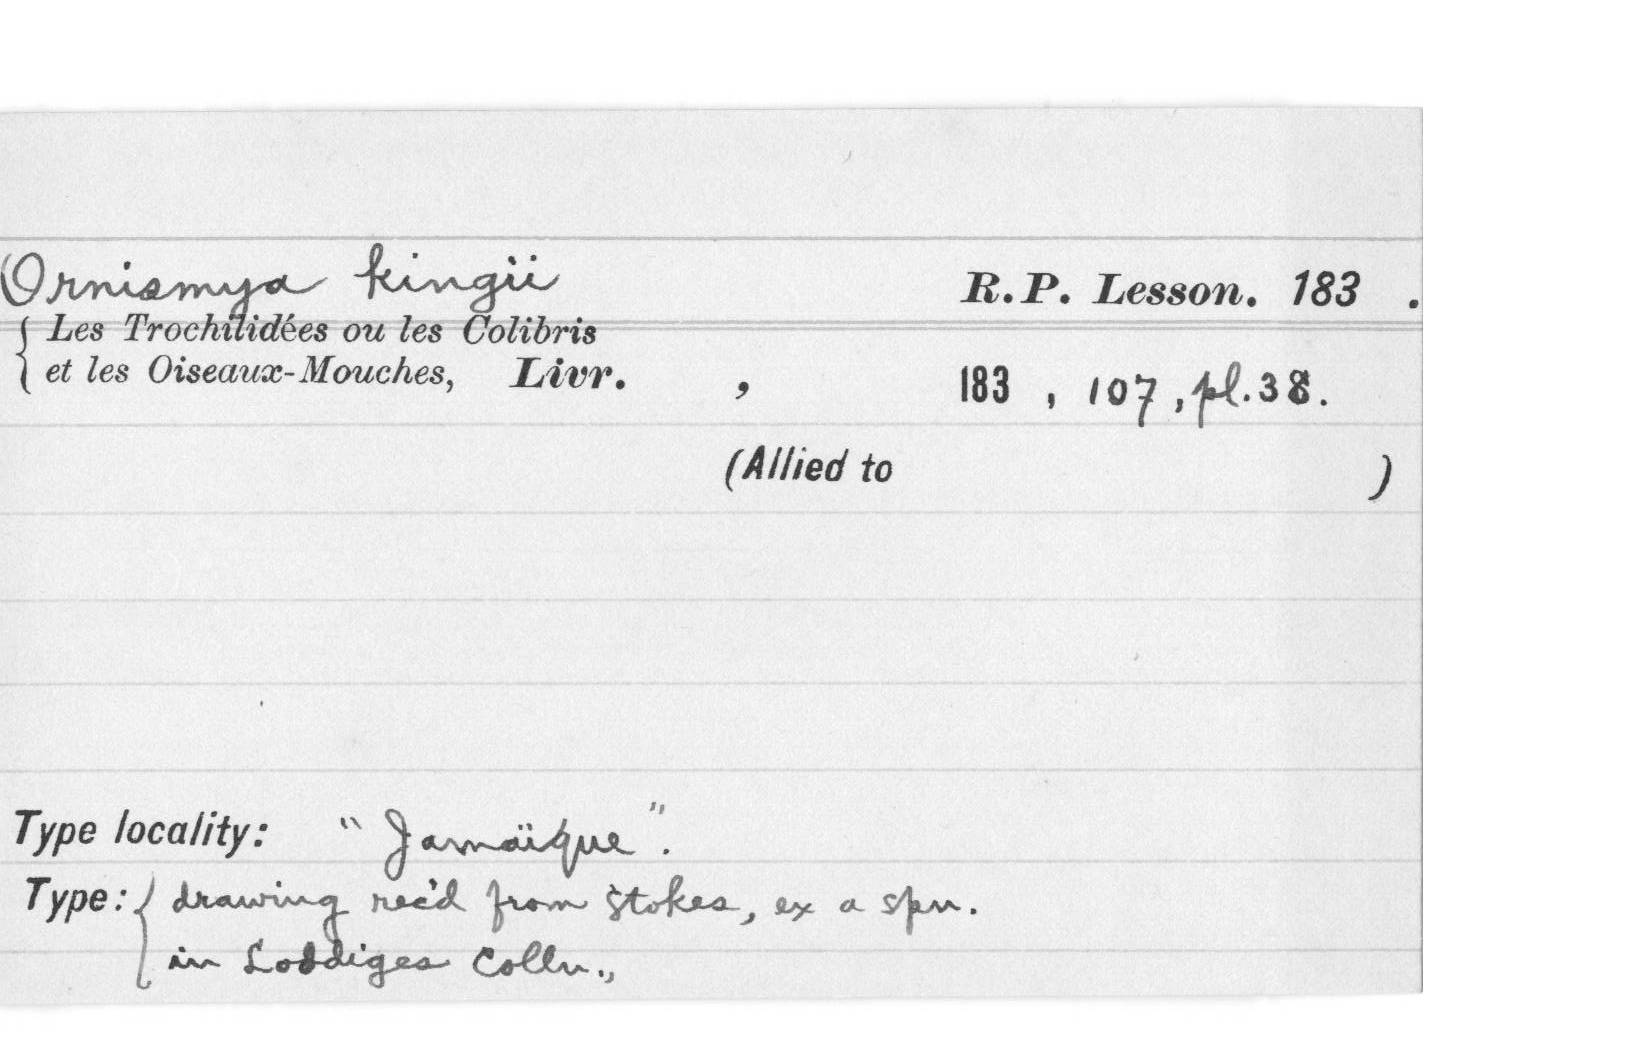 Ornismya kingii R.P. Lesson. 183 .
{ Les Trochilidées ou les Colibris
et les Oiseaux-Mouches, Livr. , 183 , 107, pl.38.
(Allied to )
Type locality: "Jamaïque".
Type: { drawing rec'd from Stokes, ex a spn.
in Loddiges Colln.,